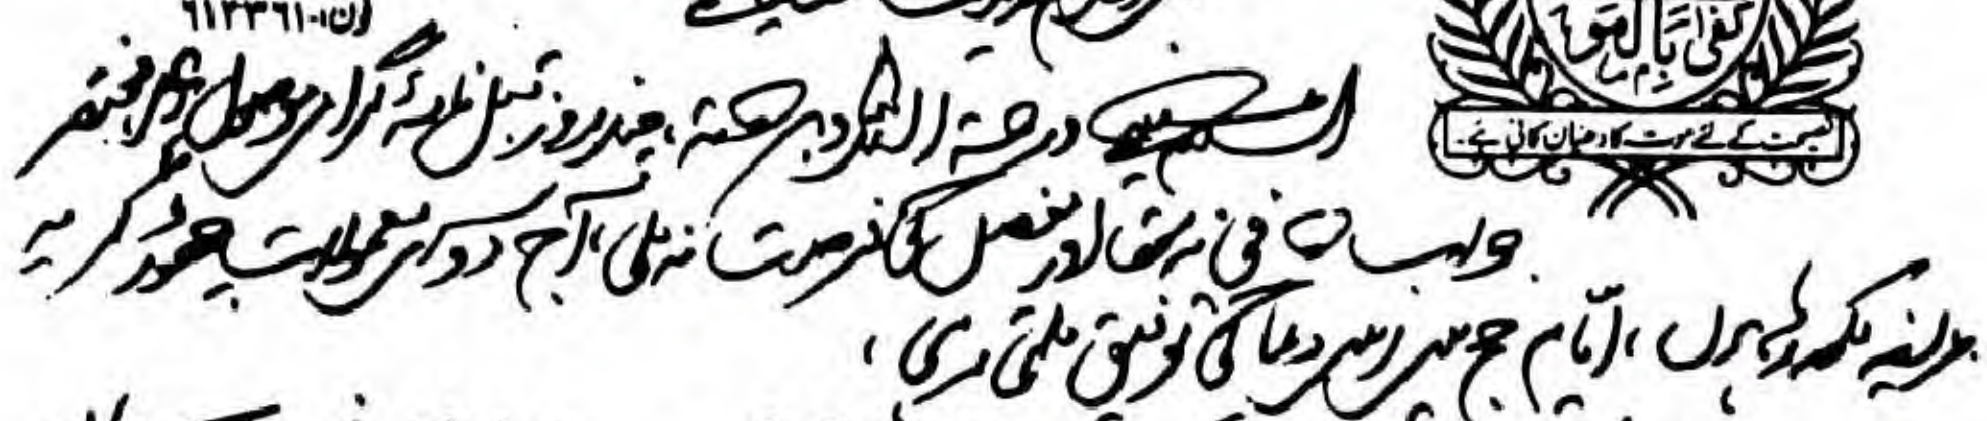 فون:۶۱۲۳۳۶۱-۰
كفى بالموت
نصیحت کے لئے موت کا دھیان کافی ہے۔
السلام علیکم ورحمۃ اللہ وبرکاتہ، چند روز قبل نامۂ گرامی موصول ہوا، مختصر
جواب شافی نہ تھا اور مفصل کی فرصت نہ ملی، آج دوسرے معمولات چھوڑ کر یہ
عریضہ لکھ رہا ہوں، ایّام حج میں اس دعا کی توفیق ملتی رہی،